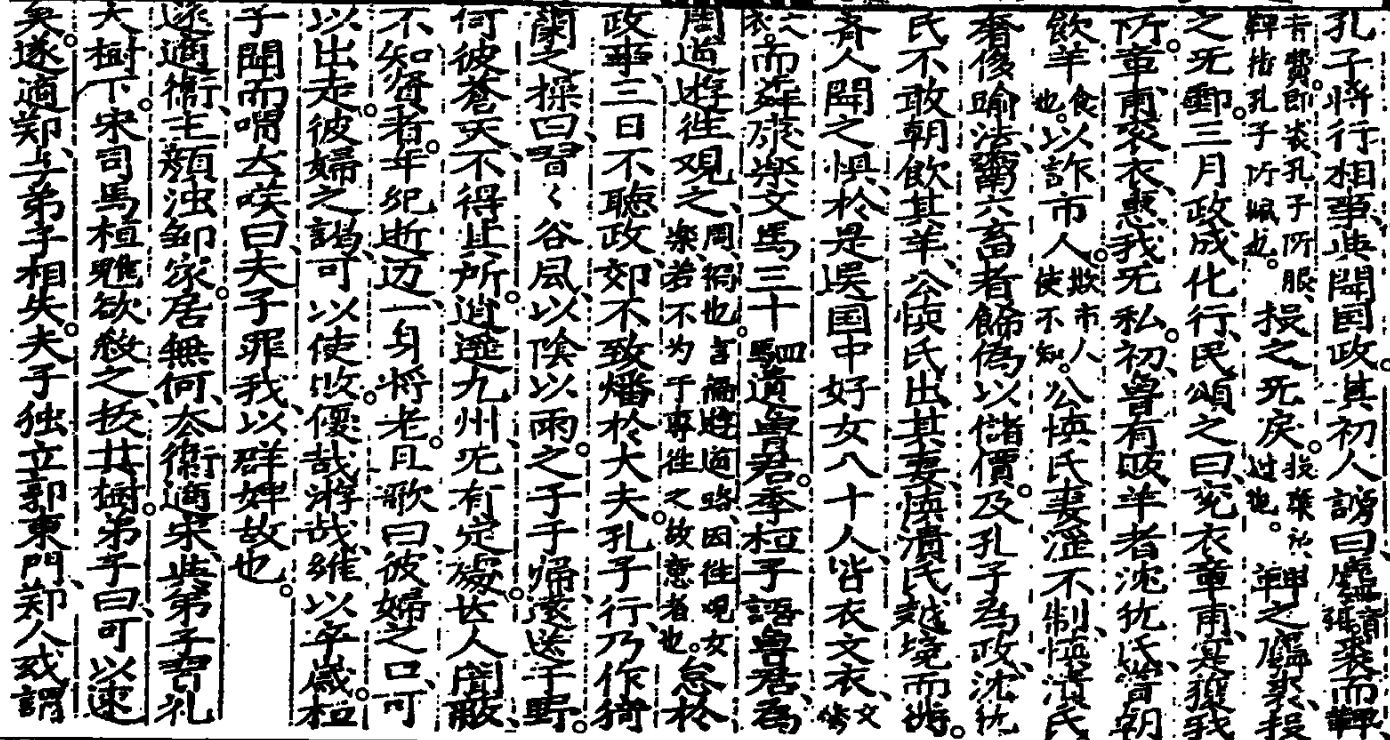 孔子将行相事與聞国政其初人謗曰麛裘而鞸
青費即裘孔子所服鞸指孔子所佩也投之无戾投棄訧過也鞸之麛裘投
之无郵三月政成化行民頌之曰兖衣章甫寔獲我
所章甫衮衣惠我无私初魯有販羊者沈犹氏皆朝
飲羊食也以詐市人欺市人使不知公慎氏妻淫不制慎潰氏
奢侈踰法鬻六畜者餝偽以儲價及孔子為政沈犹
氏不敢朝飲其羊公慎氏出其妻慎潰氏越境而徙
斉人聞之惧於是吴国中好女八十人皆衣文衣文飾
衣而舞康楽文馬三十四駟遺魯君季桓子語魯君為
周道遊往观之周徧也言徧遊道路因往观女楽若不为于専往之故意者也怠於
政事三日不聴政郊不致燔於大夫孔子行乃作猗
蘭之操曰習〻谷風以陰以雨之子于帰遠送于野
何彼蒼天不得其所逍遥九州无有定處世人闇蔽
不知賢者年紀逝迈一身将老且歌曰彼婦之口可
以出走彼婦之謁可以使敗優哉游哉維以卒歳桓
子聞而喟大㗖曰夫子罪我以群婢故也
遂適衛主顔浊鄒家居無何去衛適宋與弟子習礼
大樹下宋司馬桓魋欲殺之抜其樹弟子曰可以速
矣遂適鄭与弟子相失夫子独立郭東門鄭人或謂